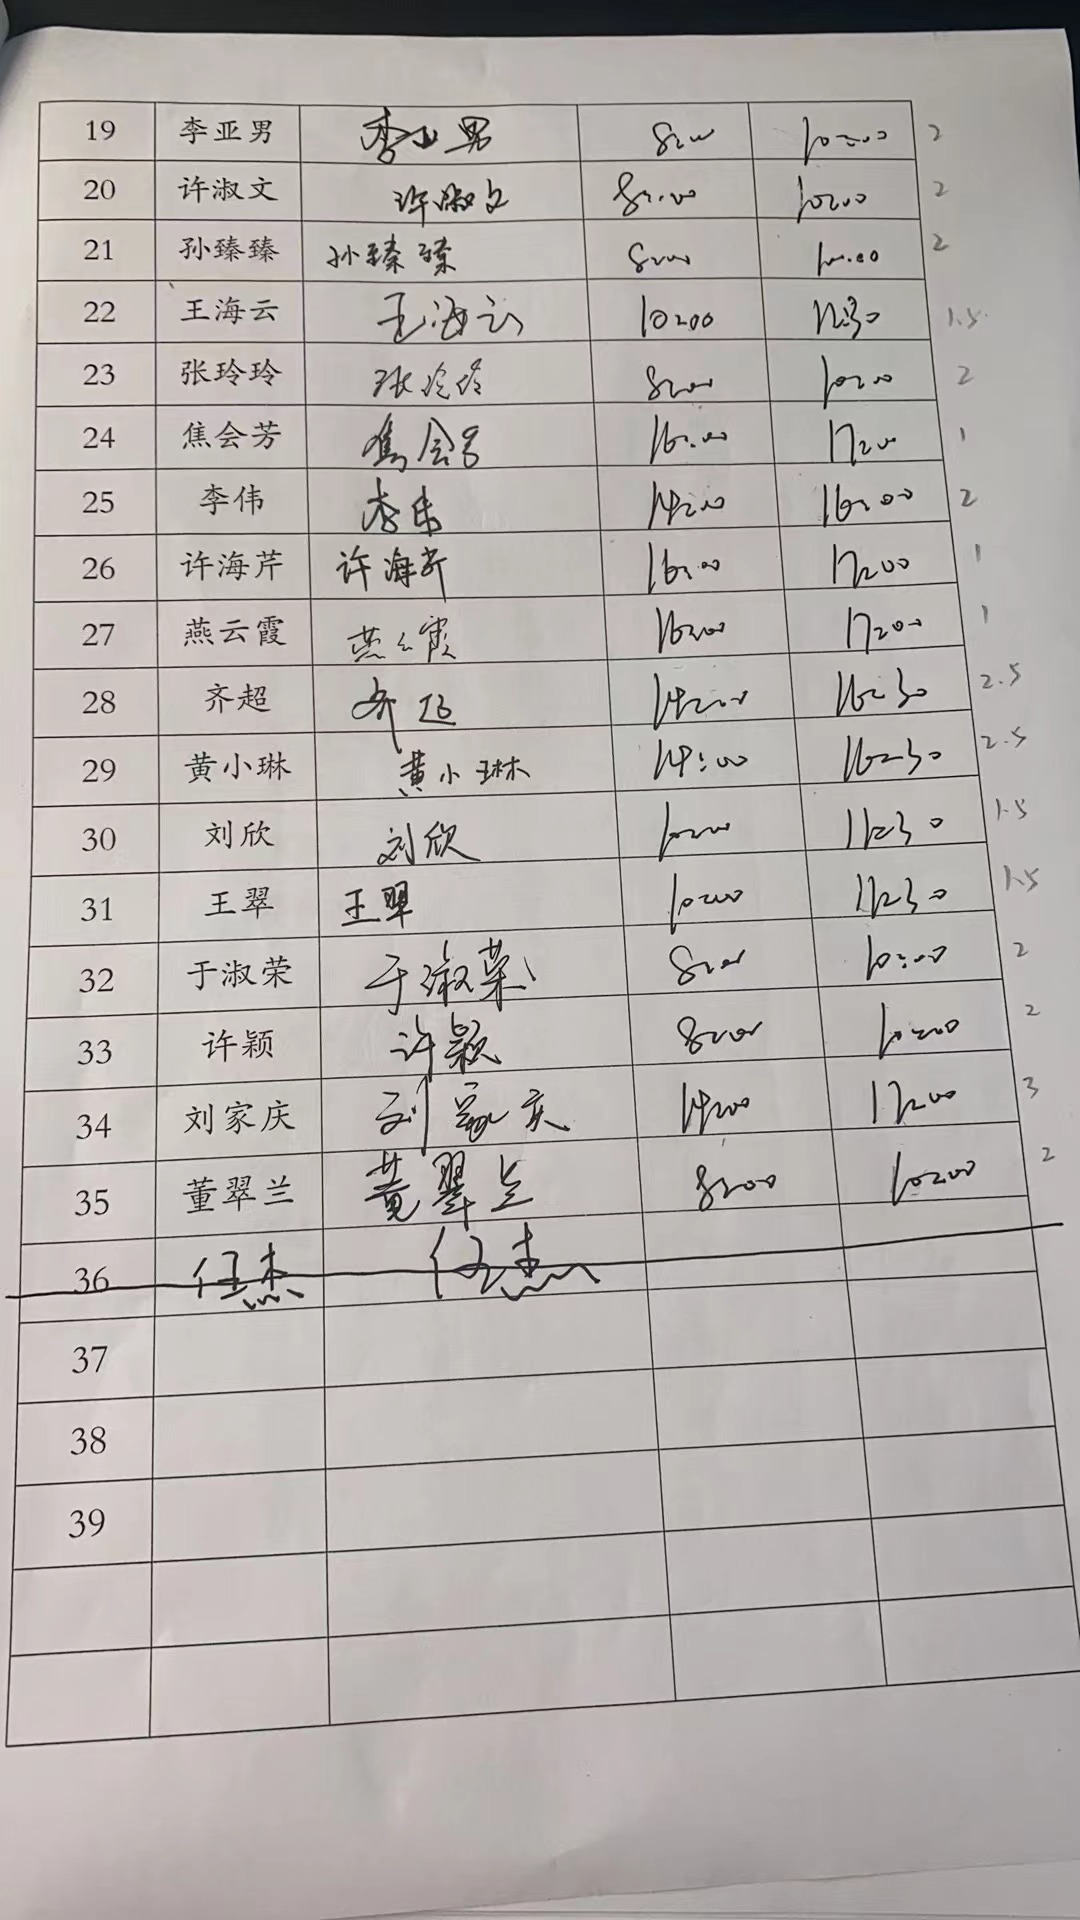 19 李亚男 李亚男 8:00 10:00 2
20 许淑文 许淑文 8:00 10:00 2
21 孙臻臻 孙臻臻 8:00 10:00 2
22 王海云 王海云 10:00 11:30 1.5
23 张玲玲 张玲玲 8:00 10:00 2
24 焦会芳 焦会芳 16:00 17:00 1
25 李伟 李伟 14:00 16:00 2
26 许海芹 许海芹 16:00 17:00 1
27 燕云霞 燕云霞 16:00 17:00 1
28 齐超 齐超 14:00 16:30 2.5
29 黄小琳 黄小琳 14:00 16:30 2.5
30 刘欣 刘欣 10:00 11:30 1.5
31 王翠 王翠 10:00 11:30 1.5
32 于淑荣 于淑荣 8:00 10:00 2
33 许颖 许颖 8:00 10:00 2
34 刘家庆 刘家庆 14:00 17:00 3
35 董翠兰 董翠兰 8:00 10:00 2
36 任杰 任杰
37
38
39